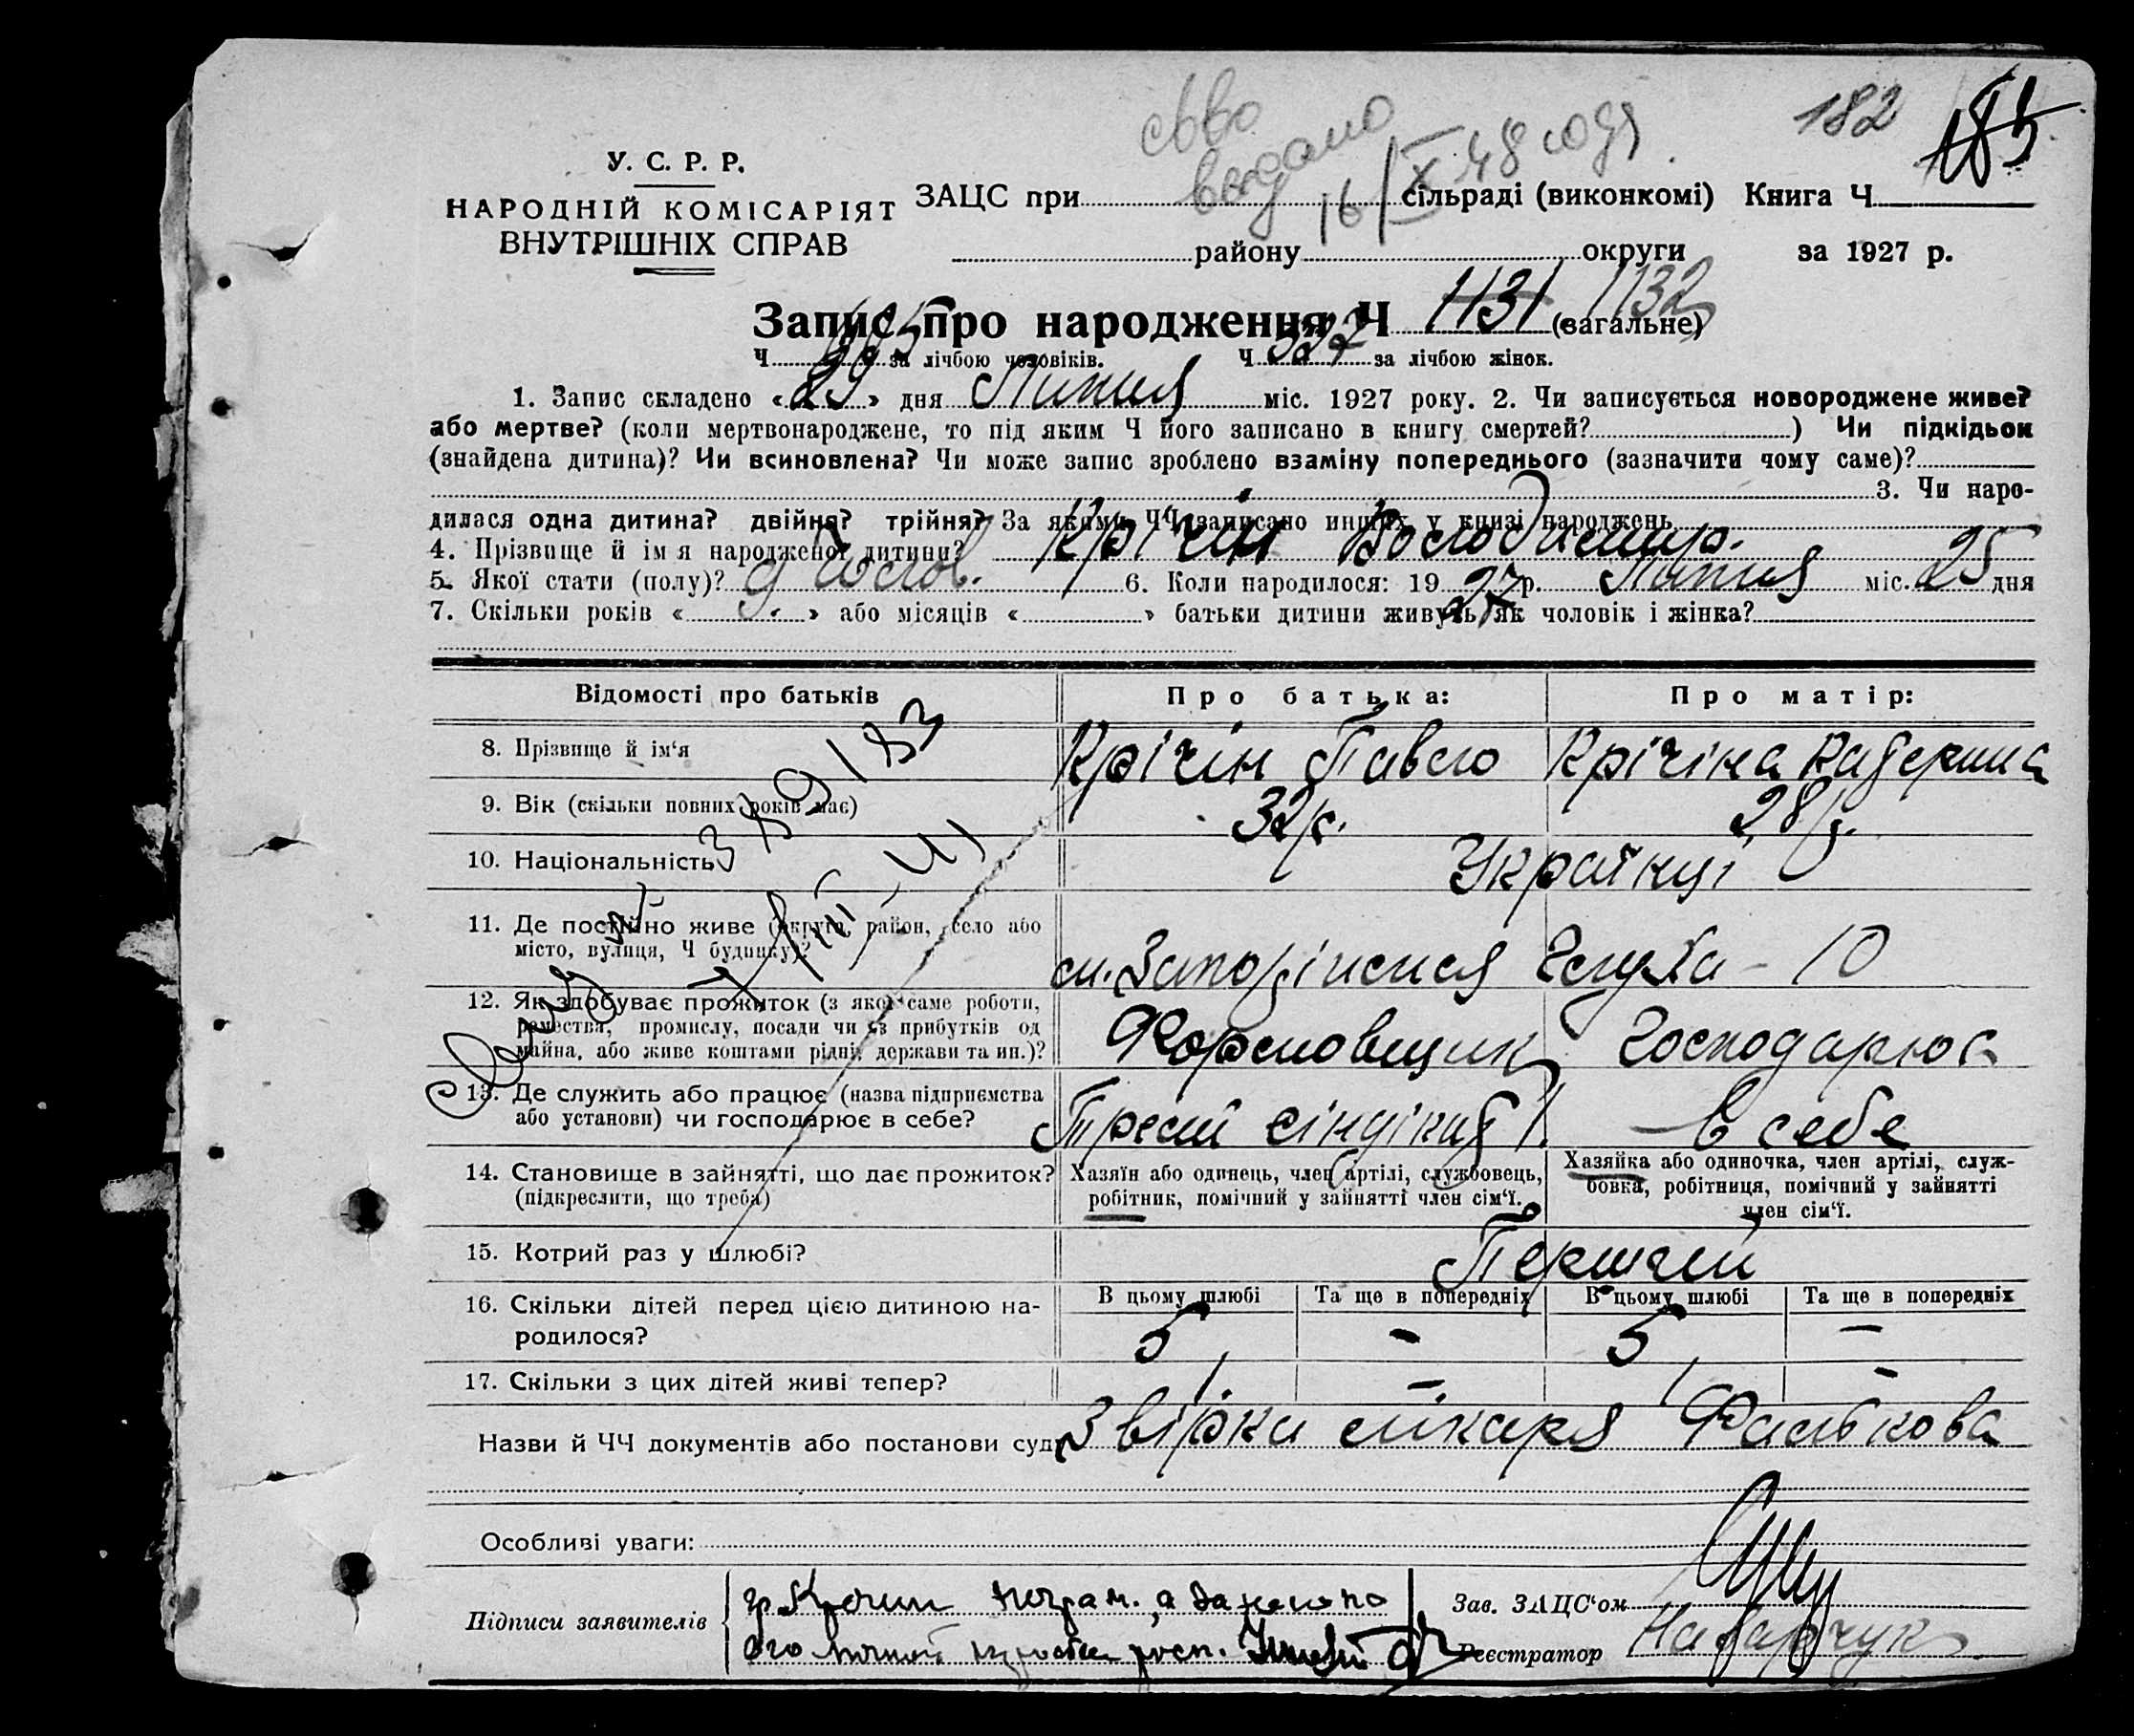 182 185
свво
видано
16/X 48 году
У. С. Р. Р.
НАРОДНІЙ КОМІСАРІЯТ
ВНУТРІШНІХ СПРАВ
ЗАЦС при сільраді (виконкомі) Книга Ч
району округи за 1927 р.
Запис про народження Ч 1131 (загальне) 1132
Ч за лічбою чоловіків. Ч 527 за лічбою жінок.
1. Запис складено «29» дня Липня міс. 1927 року. 2. Чи записується новороджене живе?
або мертве? (коли мертвонароджене, то під яким Ч його записано в книгу смертей? ) Чи підкідьок
(знайдена дитина)? Чи всиновлена? Чи може запис зроблено взаміну попереднього (зазначити чому саме)?
3. Чи наро-
дилася одна дитина? двійня? трійня? За якими ЧЧ записано инших у книзі народжень
4. Прізвище й ім я народженої дитини? Крічін Володимир.
5. Якої стати (полу)? Чолов. 6. Коли народилося: 1927 р. Липня міс. 25 дня
7. Скільки років « 9 » або місяців « » батьки дитини живуть як чоловік і жінка?
Відомості про батьків Про батька: Про матір:
8. Прізвище й ім'я Крічін Павло Крічіна Катерина
9. Вік (скільки повних років має) 32 р. 28 р.
10. Національність Українці
11. Де постійно живе (округа, район, село або
місто, вулиця, Ч будинку)? м. Запоріжжя Глуха - 10
12. Як здобуває прожиток (з якої саме роботи,
ремества, промислу, посади чи із прибутків од
майна, або живе коштами рідні, держави та ин.)? Формовщик Господарює
13. Де служить або працює (назва підприємства
або установи) чи господарює в себе? в себе
14. Становище в зайнятті, що дає прожиток?
(підкреслити, що треба)
Хазяїн або одинець, член артілі, службовець,
робітник, помічний у зайнятті член сім'ї.
Хазяйка або одиночка, член артілі, служ-
бовка, робітниця, помічний у зайнятті
член сім'ї.
15. Котрий раз у шлюбі? Перший
16. Скільки дітей перед цією дитиною на-
родилося?
В цьому шлюбі Та ще в попередніх В цьому шлюбі Та ще в попередніх
5 - 5 -
17. Скільки з цих дітей живі тепер? 1 - 1 -
Назви й ЧЧ документів або постанови суду Звірка лікаря Фалькова
Особливі уваги:
Підписи заявителів гр. Кречин неграм.
его личной просьбе росп.
Зав. ЗАЦС'ом
Реєстратор Назарчук